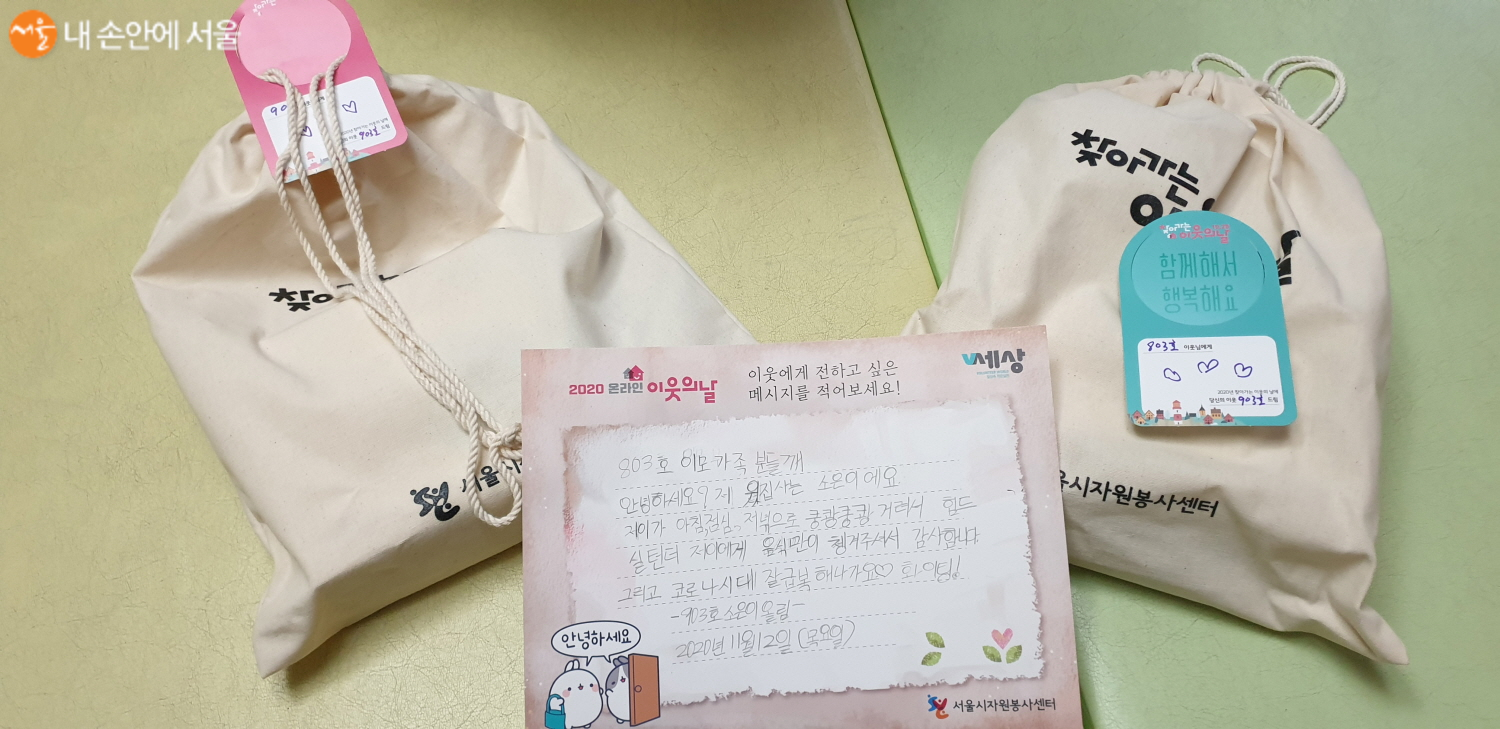 서울 내 손안에 서울
903호
찾아가는
찾아가는
이웃의날
함께해서
행복해요
803호 이웃님에게
2020년 찾아가는 이웃의 날에
당신의 이웃 903호 드림
서울시자원봉사센터
2020 온라인 이웃의날
이웃에게 전하고 싶은
메시지를 적어보세요!
V세상
803호 이모가족 분들께
안녕하세요? 제 윗집사는 소은이에요
저이가 아침,점심,저녁으로 쿵쾅쿵쾅 거려서 힘드
실턴디 저이에게 음식만이 챙겨주셔서 감사합니다
그리고 코로나시대 잘극복해나가요♡ 화이팅!
-903호 소은이올림-
2020년 11월 12일 (목요일)
안녕하세요
서울시자원봉사센터